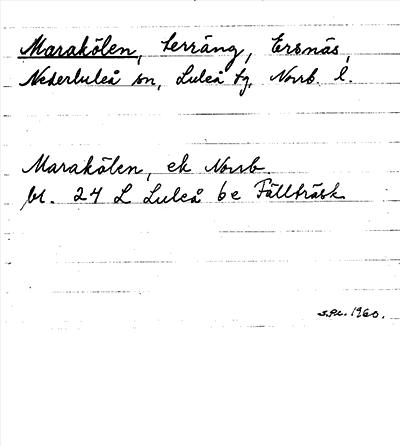 Marakölen, terräng, Ersnäs,
Nederluleå sn, Luleå tg, Norrb. l.
Marakölen, ek Norrb.
bl. 24 L Luleå 6e Fällträsk
1960.